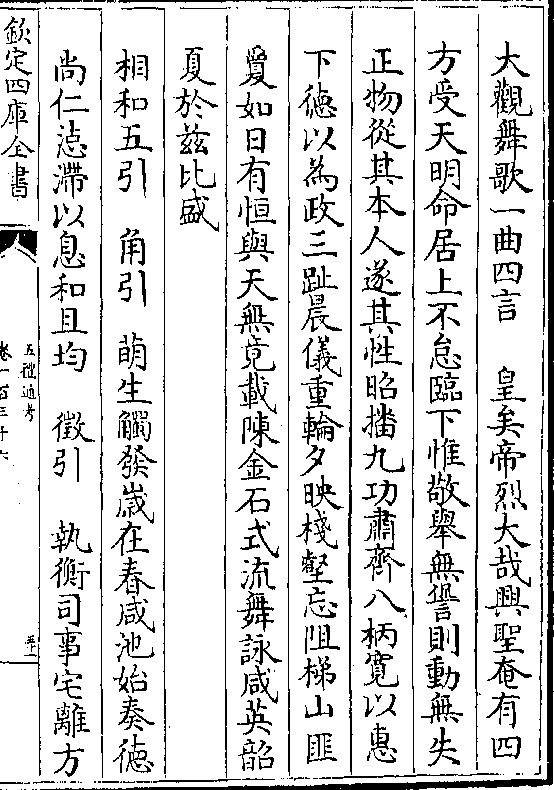 大觀舞歌一曲四言　皇矣帝烈大哉興聖奄有四
方受天明命居上不怠臨下惟敬舉無諐則動無失
正物從其本人遂其性昭播九功肅齊八柄寛以惠
下徳以為政三趾晨儀重輪夕映棧壑忘阻梯山匪
敻如日有恒與天無竟載陳金石式流舞詠咸英韶
夏於兹比盛
相和五引　角引　萌生觸發嵗在春咸池始奏徳
尚仁惉滯以息和且均　徵引　執衡司事宅離方
欽定四庫全書
五禮通考
卷一百三十六